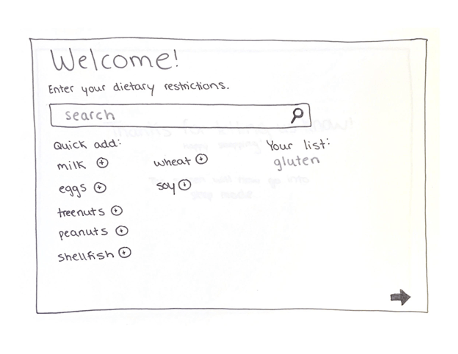 Welcome!
Enter your dietary restrictions.
search
Quick add:
milk
eggs
treenuts
peanuts
shellfish
wheat
soy
Your list:
gluten